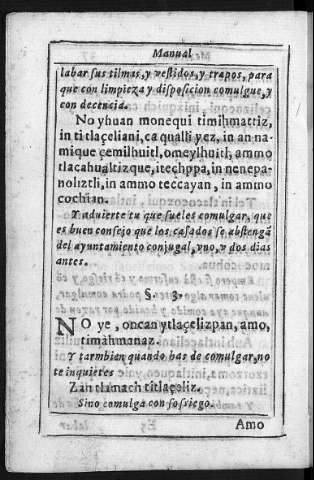 Manual
labar sus tilmas, y vestidos, y trapos, para
que con limpieza y disposicion comulgue, y
con decencia.
No yhuan monequi timihmattiz,
in ti tlaçeliani, ca qualli yez, in an na
mique çemilhuitl, omeylhuitl, ammo
tlacahualtizque, itechppa, in nenepa-
noliztli, in ammo teccayan, in ammo
cochian.
Y aduierte tu que sueles comulgar, que
es buen consejo que los casados se abstengã
del ayuntamiento conjugal, vno, y dos dias
antes.
§. 3.
NO ye, oncan ytlaçelizpan, amo,
timàhmanaz.
Y tarmbien quando has de comulgar, no
te inquietes
Zan tlamach titlaçeliz.
Sino comulga con sossiego.
Amo